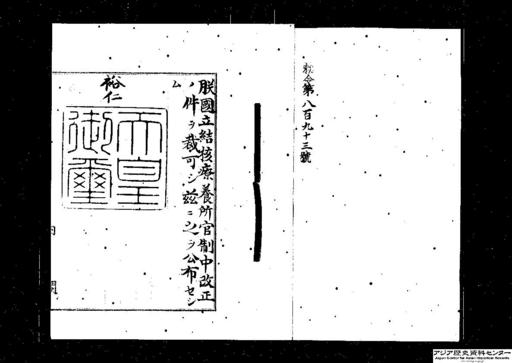 勅令第八百九十三號
朕國立結核療養所官制中改正
ノ件ヲ裁可シ茲ニ之ヲ公布セシ
ム
裕仁
天皇
御璽
内
閣
アジア歴史資料センター
Japan Center for Asian Historical Records